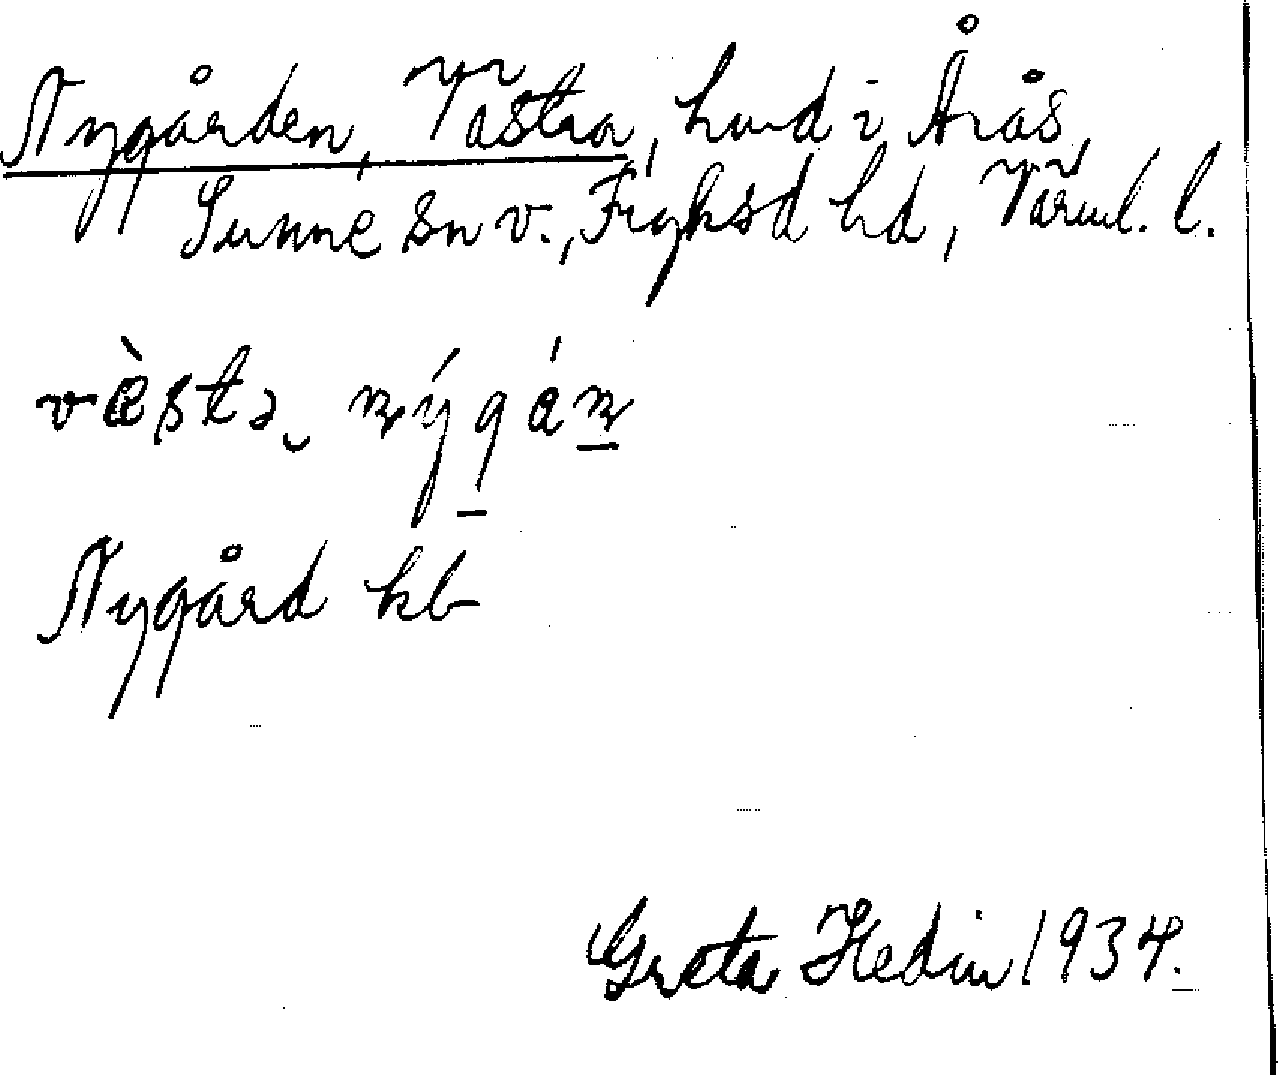 Nygården, Västra, hmd i Årås,
Sunne sn v., Fryksd hd, Värml. l.
væ̀stə nýgán
Nygård kb
Greta Hedin 1934.